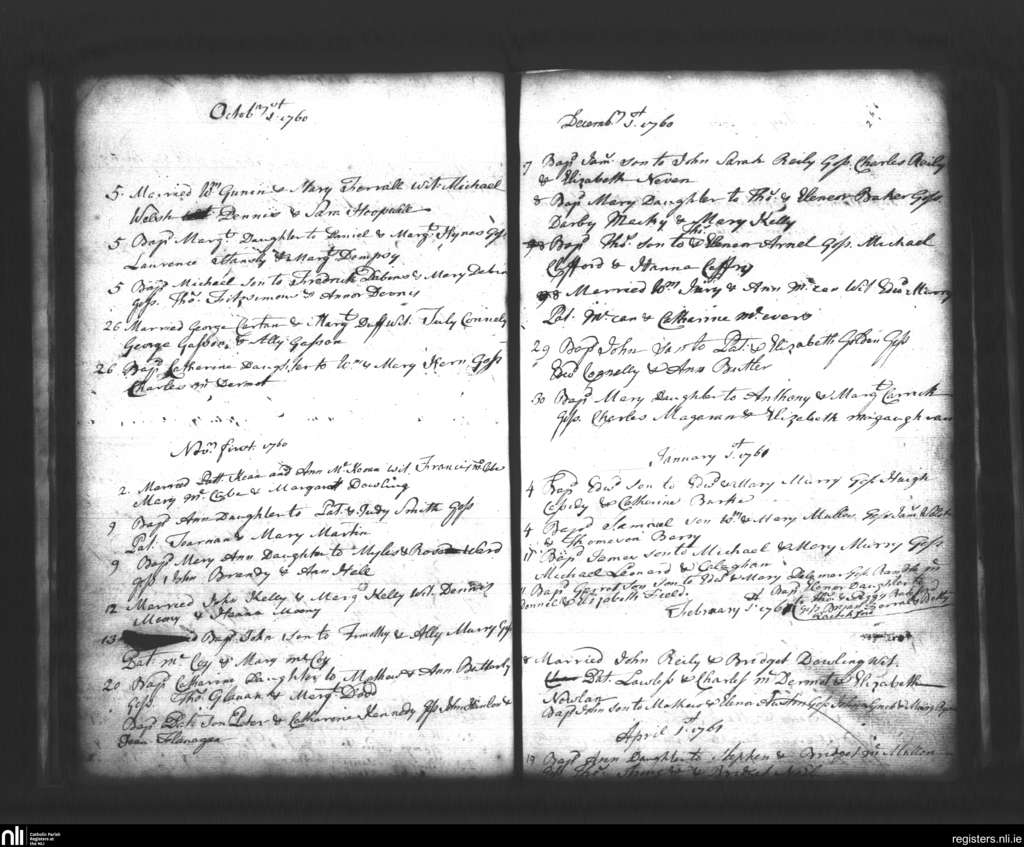 Octobr 1st 1760
5. Married Wm Gunin & Mary Ferrall Wit Michael
Welsh Dennis & Sam Hoophill
5. Bapd Margt Daughter to Daniel & Margt Hynas Goss
Laurence & Margt Dempsy
5 Bapd Michael son to Fredrick & Mary
Goss. Thos Fitzsimons & Dennis
26 Married George Cartan & Margt Duff Wit. Judy Connely
George Gafson, & Ally Gafson
26 Bapd Catherine Daughter to Wm & Mary Kern Goss
Charles mc Dermot
Novr first 1760
2. Married Patt. Kean and Ann Mc Kenna Wit. Francis mc Cabe
Mary Mc Cabe & Margaret Dowling
9 Bapd Ann Daughter to Pat & Judy Smith Goss
Pat. & Mary Martin
9 Bapd Mary Ann Daughter to Myles & Rose Ward
Goss John Brandy & Ann Hall
12 Married John Kelly & Margt Kelly Wit. Dennis
Moony & Hanna Moony
13 Bapd John son to Timothy & Ally Murry Goss
Pat mc Coy & Mary mc Coy
20 Bapd Catharine Daughter to Mathew & Ann Butterly
Goss. Thos Glanan & Margt Dodd
Bapd Peter son Peter & Catharine Kennedy Goss John Hanlon &
Jean Flanagan
Decembr 1st 1760
7 Bapd Jams son to John Sarah Reily Goss. Charles Reily
& Elizabeth Neven
8 Bapd Mary Daughter to Thos & Elenor Baker Goss
Darby Macky & Mary Kelly
Bapd Thos son to Thos & Elenor Arnel Goss. Michael
Clifford & Hanna Caffry
8 Married Wm Jury & Ann Mc can Wit Edwd Murry
Pat. Mc can & Catharine Mc evers
29 Bapd John son to Pat. & Elizabeth Golden Goss
Edwd Connelly & Ann Butler
30 Bapd Mary Daughter to Anthony & Margt Carrick
Goss. Charles Magaran & Elizabeth
January 1st 1761
4 Bapd Edwd son to Edwd & Mary Murry Goss Hugh
Casidy & Catherine Burke
4 Bapd Samuel son Wm & Mary Mullon Goss Jams
& Thomason Berry
11 Bapd James son to Michael & Mary Murry Goss
Michael Lenard & Calaghan
11 Bapd Garrot son to Edwd & Mary Delamar Goss Randle mc
Donnel & Elizabeth Field.
Bapd Honor Daughter to
Thos & Peggy
Goss Bryan & Betty
February 1st 1761
8 Married John Reily & Bridget Dowling Wit.
Pat Lawless & Charles mc Dermot & Elizabeth
Nowlan
Bapd John son to Mathew & Elenor Austin Goss John Lynch & Mary
April 1st 1761
19 Bapd Ann Daughter to Stephen & Bridget mc Mullon
Goss Thos & Bridget
nli
Catholic Parish
Registers at
the NLI
registers.nli.ie